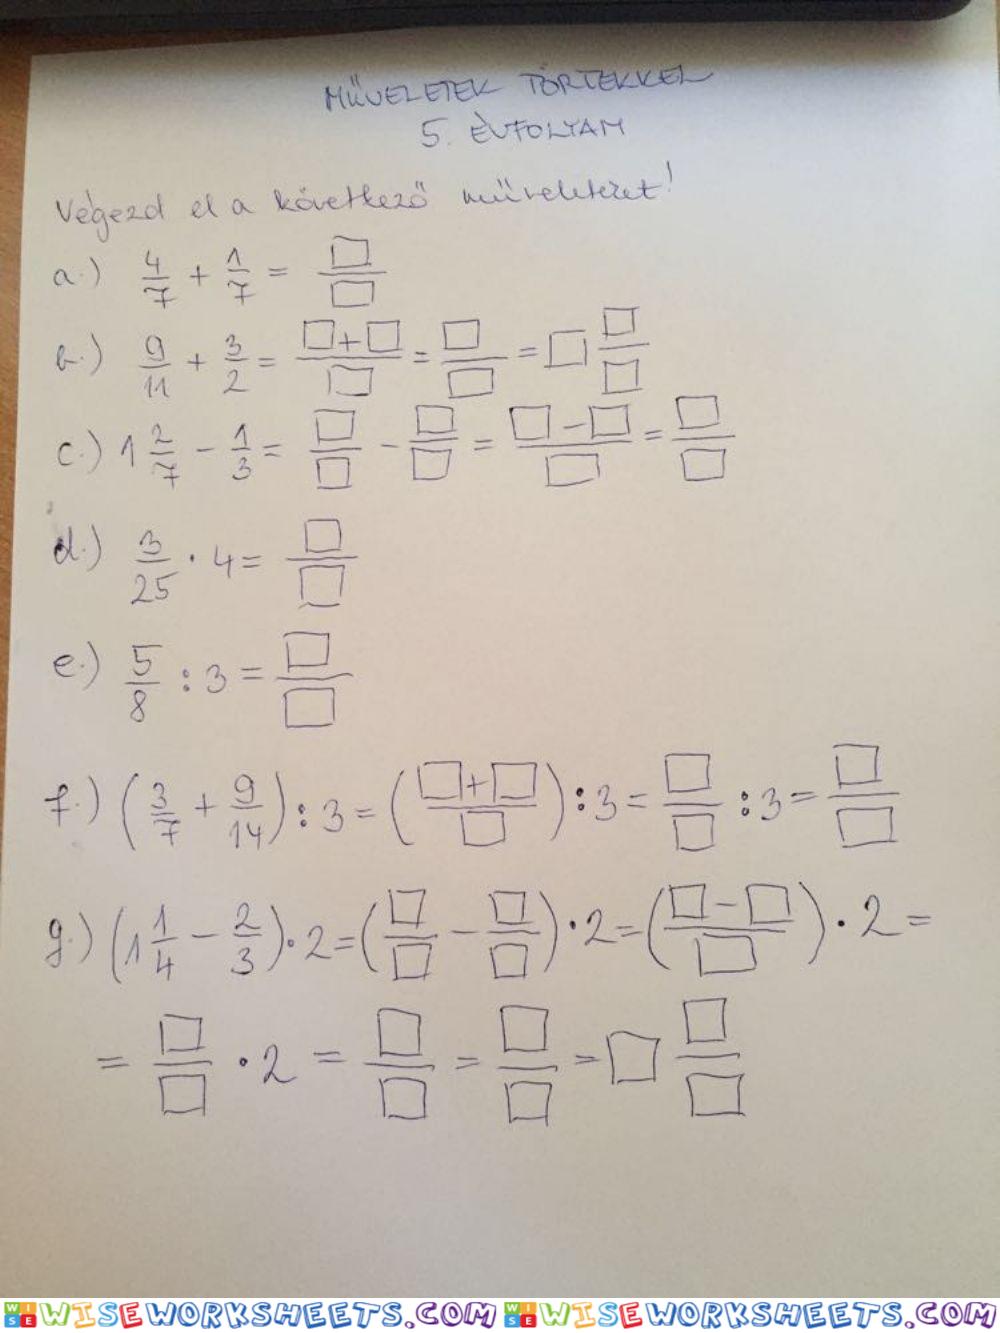 MŰVELETEK TÖRTEKKEL
5. ÉVFOLYAM
Végezd el a következő műveleteket!
a.) 4/7 + 1/7 = □/□
b.) 9/11 + 3/2 = (□+□)/□ = □/□ = □ □/□
c.) 1 2/7 - 1/3 = □/□ - □/□ = (□-□)/□ = □/□
d.) 3/25 · 4 = □/□
e.) 5/8 : 3 = □/□
f.) (3/7 + 9/14) : 3 = ((□+□)/□) : 3 = □/□ : 3 = □/□
g.) (1 1/4 - 2/3) · 2 = (□/□ - □/□) · 2 = ((□-□)/□) · 2 =
= □/□ · 2 = □/□ = □/□ = □ □/□
WISEWORKSHEETS.COM WISEWORKSHEETS.COM